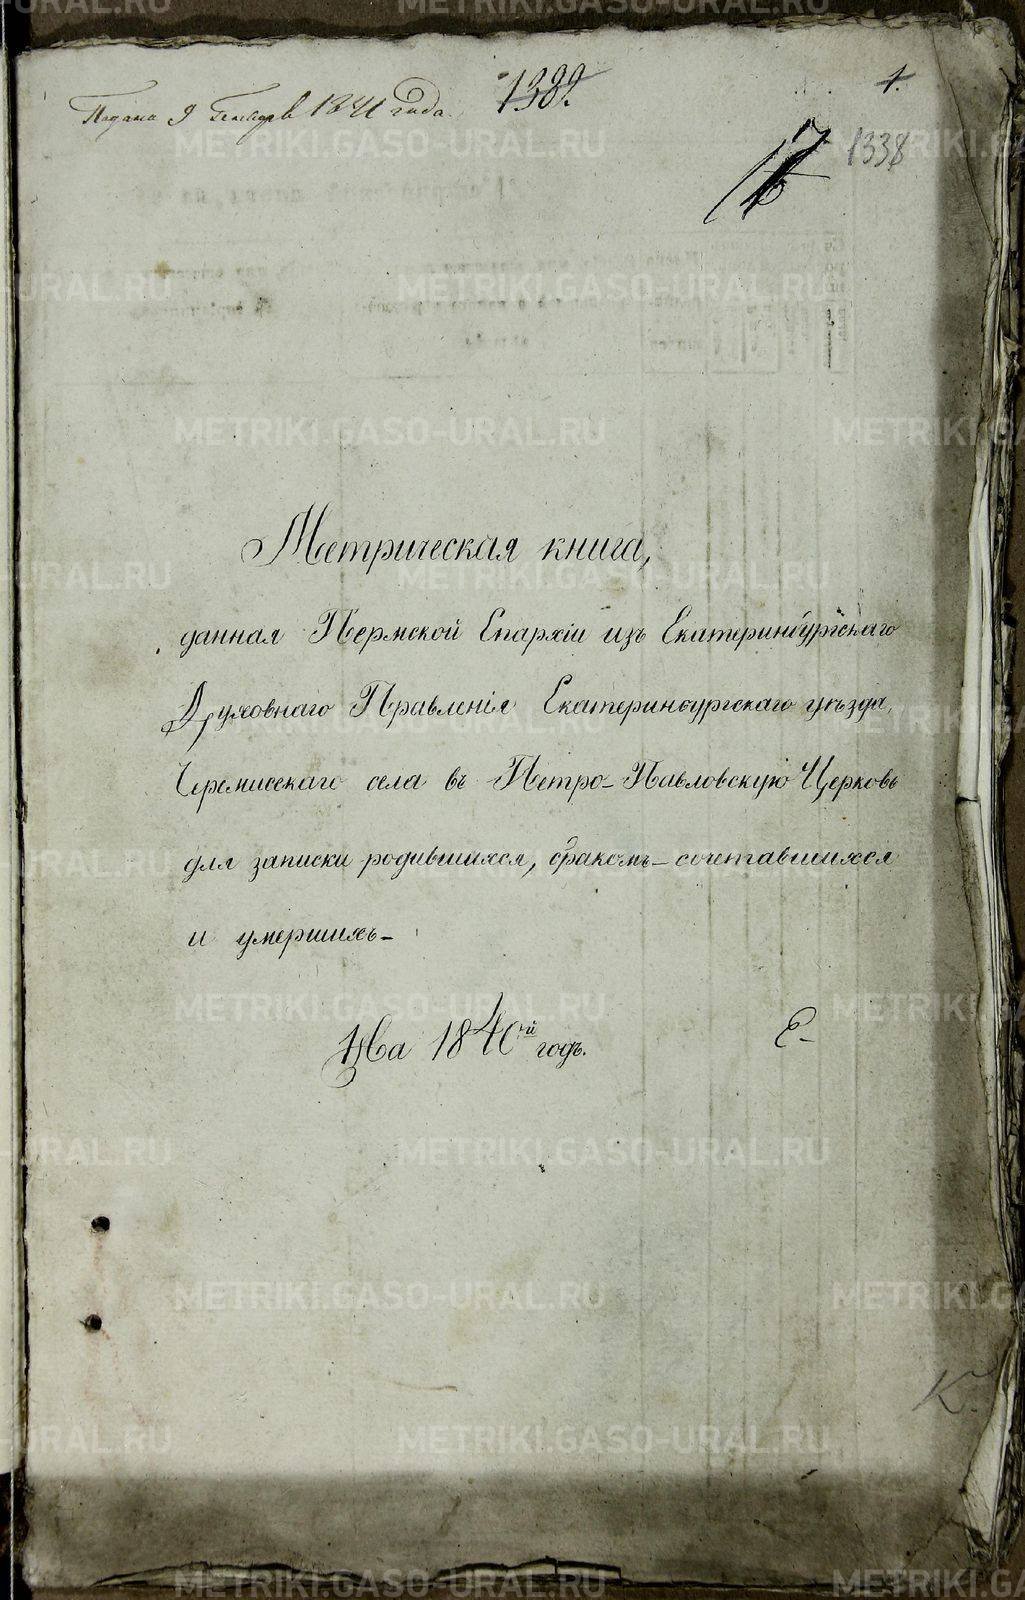 Подана 9 Генваря 1841 года.
1389.
1.
17
1338
Метрическая книга,
данная Пермской Епархiи изъ Екатеринбургскаго
Духовнаго Правленiя Екатеринбургскаго уѣзда,
Черемисскаго села въ Петро-Павловскую Церковь
для записки родившихся, бракомъ-сочетавшихся
и умершихъ-
На 1840й годъ.
Е-
К.
METRIKI.GASO-URAL.RU